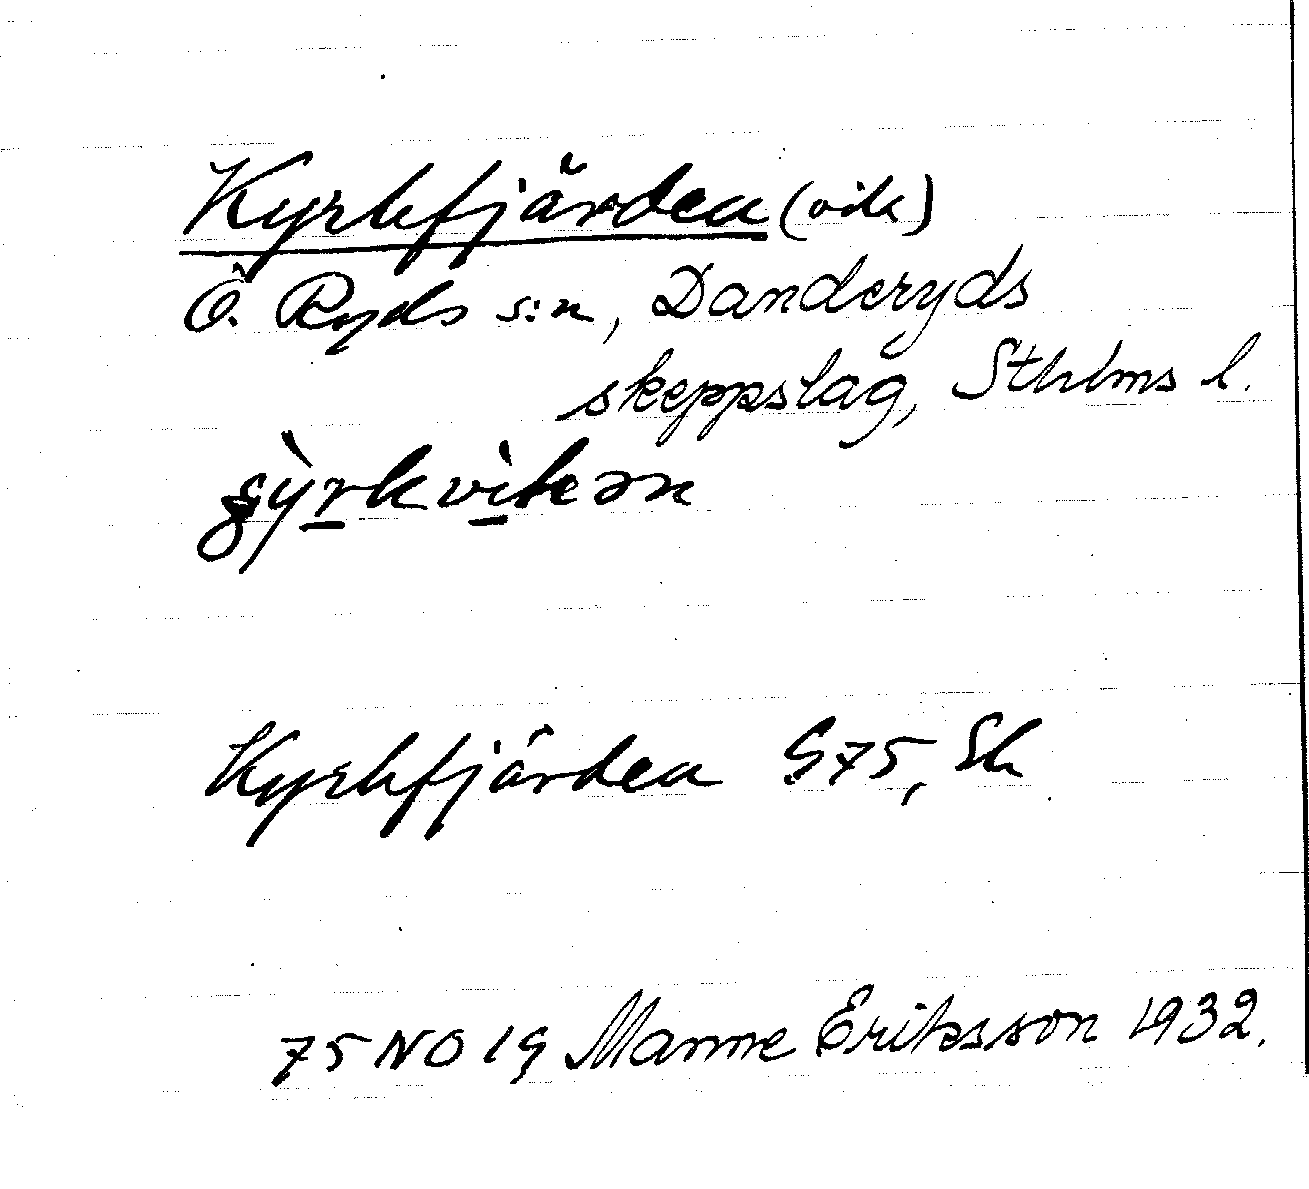 Kyrkfjärden (vik)
Ö. Ryds s:n, Danderyds
skeppslag, Sthlms l.
kvikən
Kyrkfjärden G75, Sk
75 NO 19 Manne Eriksson 1932.